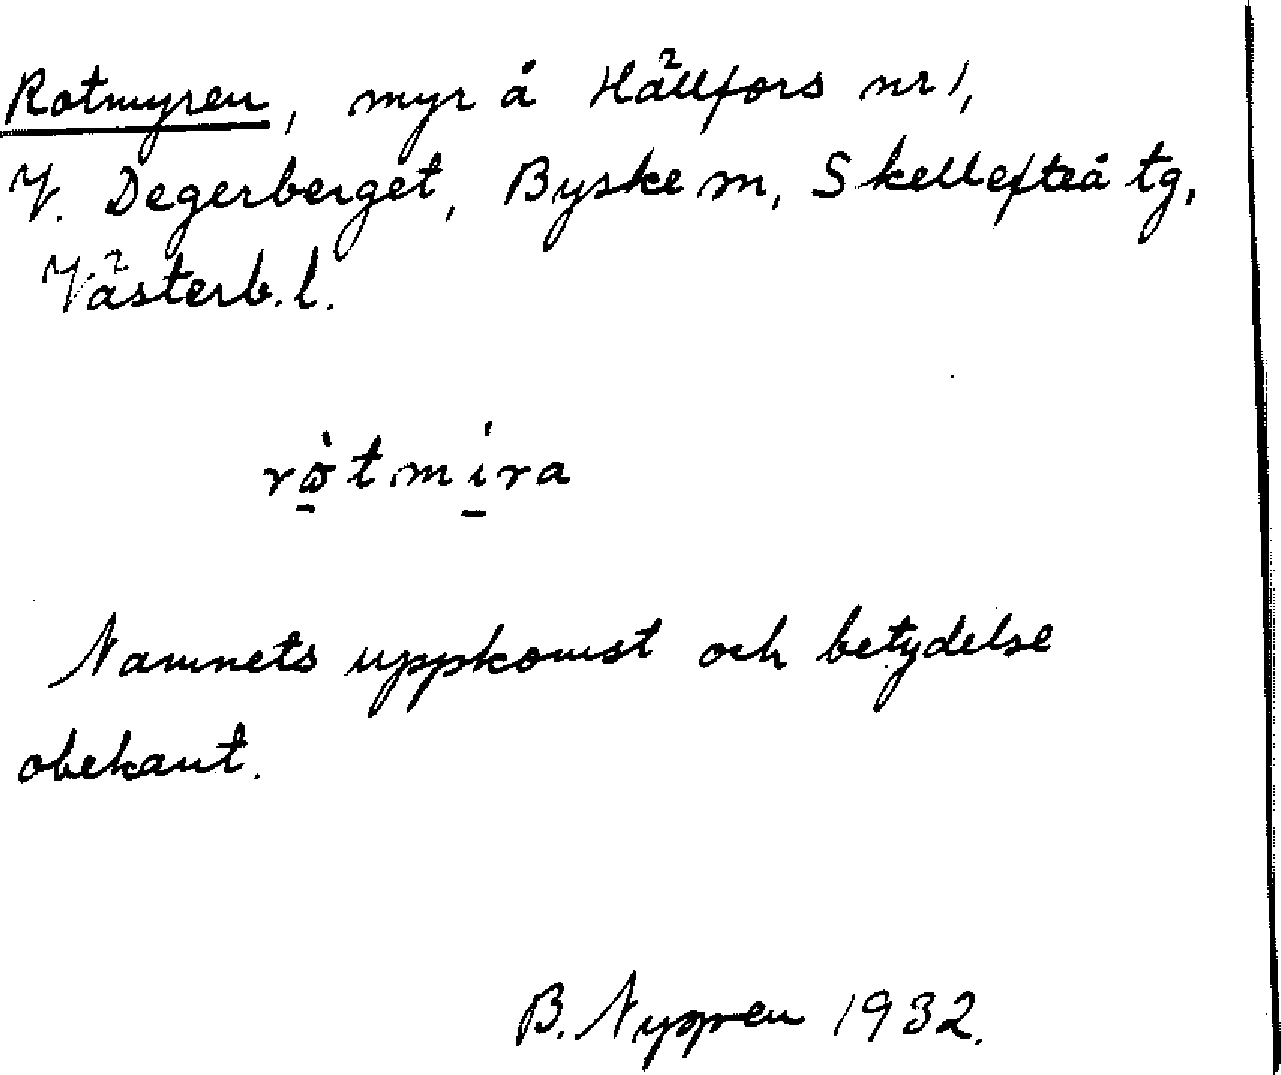 Rotmyren, myr å Hällfors nr 1,
V. Degerberget, Byske sn, Skellefteå tg,
Västerb. l.
rò̱tmi̱ra
Namnets uppkomst och betydelse
obekant.
B. Nygren 1932.